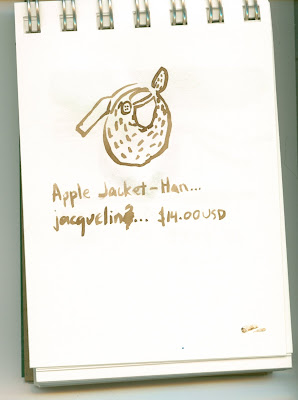 Apple Jacket-Han...
jacqueline... $14.00USD